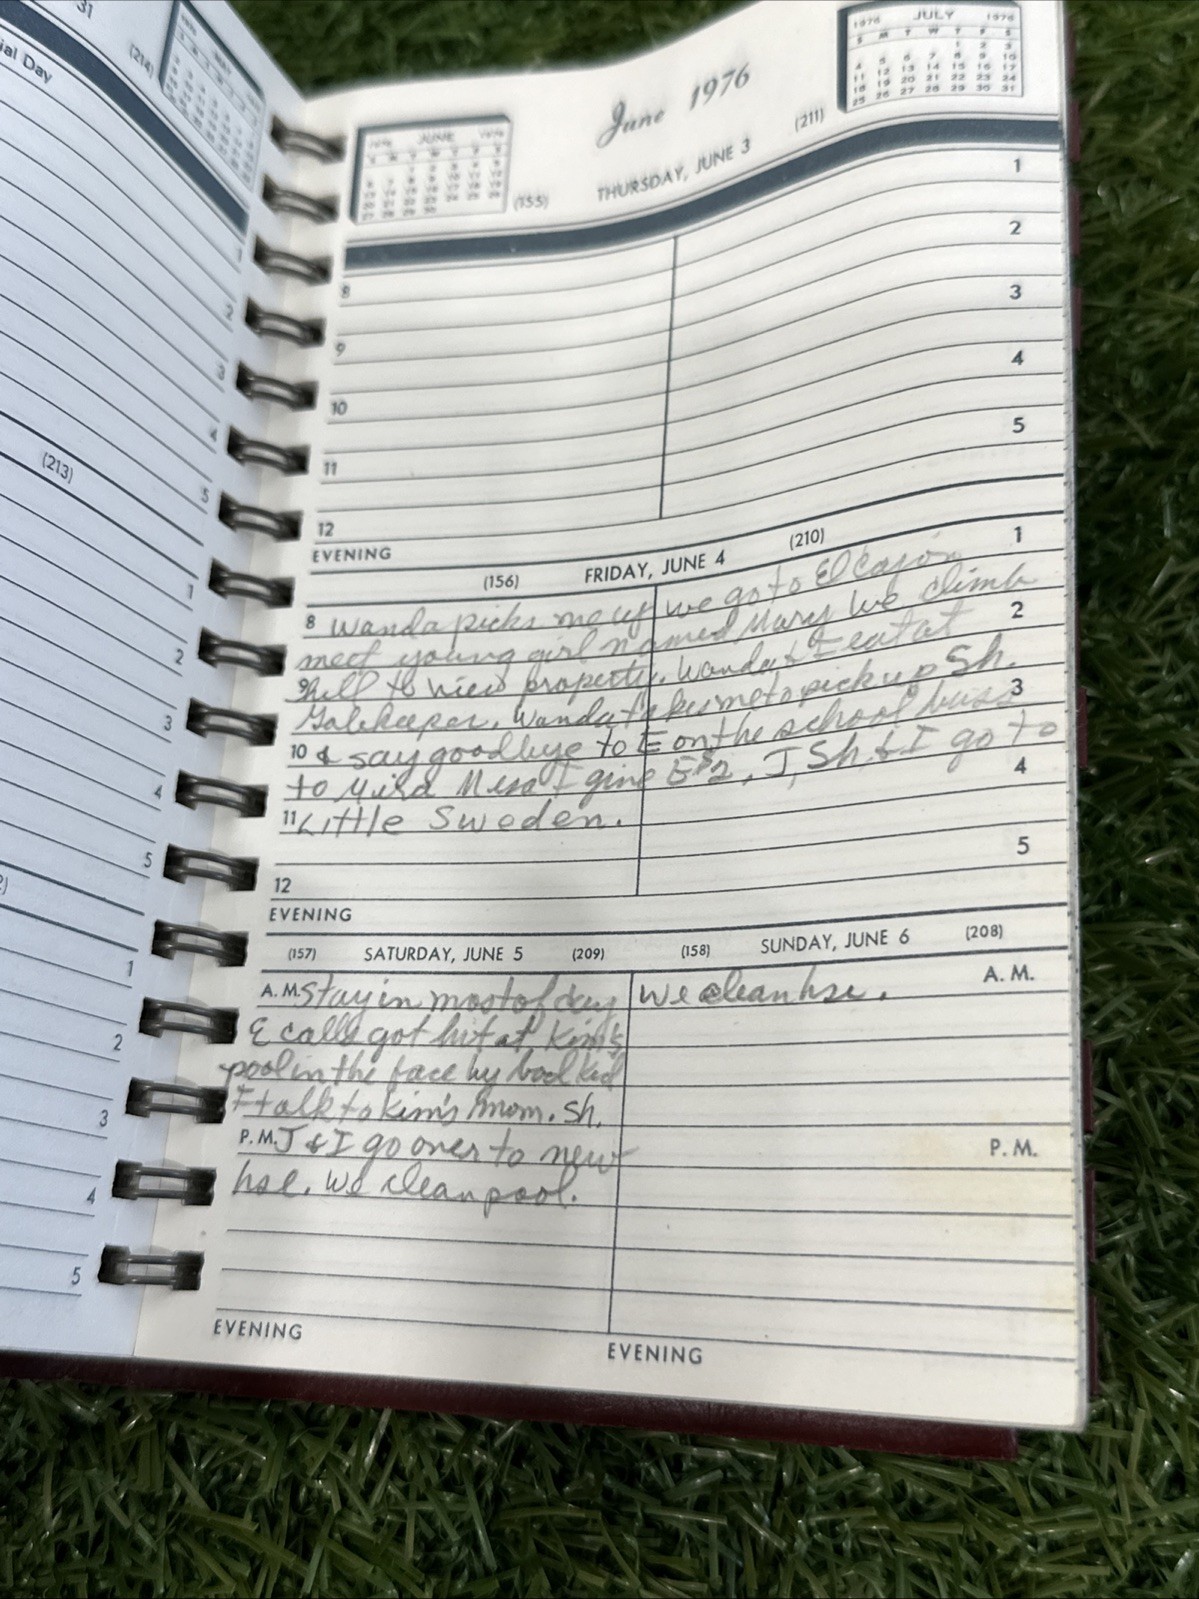 31
ial Day
(214)
1
2
3
4
5
(213)
1
2
3
4
5
1
2
3
4
5
1976 JULY 1976
S M T W T F S
1 2 3
4 5 6 7 8 9 10
11 12 13 14 15 16 17
18 19 20 21 22 23 24
25 26 27 28 29 30 31
June 1976
JUNE
(155) THURSDAY, JUNE 3 (211)
8
9
10
11
12
1
2
3
4
5
EVENING
(156) FRIDAY, JUNE 4 (210)
8 Wanda picks me up we go to El Cajon 1
meet young girl named Mary We climb
9 hill to view property. Wanda & I eat at 2
Wanda takes me to pick up Sh.
10 & say goodbye to E on the school buss 3
to Mira Mesa I give E $2. J, Sh. & I go to
11 Little Sweden. 4
12 5
EVENING
(157) SATURDAY, JUNE 5 (209)
A.M. Stay in most of day
E calls got hit at Kim's
pool in the face by bad kid
I talk to Kim's mom. Sh,
P.M. J & I go over to new
hse. We clean pool.
EVENING
(158) SUNDAY, JUNE 6 (208)
We clean hse. A.M.
P.M.
EVENING